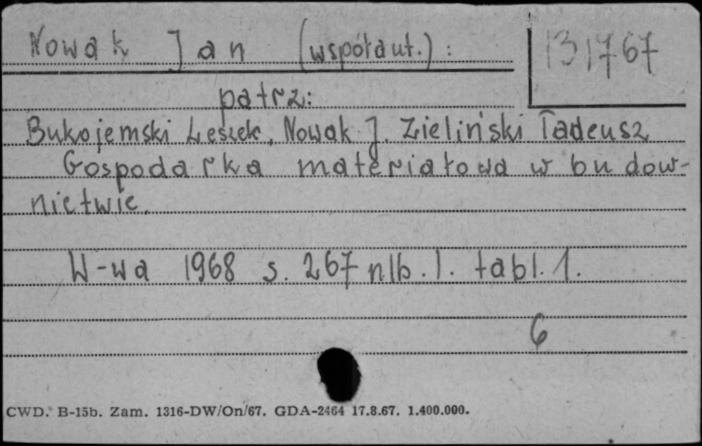 Nowak Jan (współaut.):
131767
patrz:
Bukojemski Leszek, Nowak J. Zieliński Tadeusz
Gospodarka materiałowa w budow-
nictwie.
W-wa 1968 s. 267 nlb. 1. tabl. 1.
6
CWD. B-15b. Zam. 1316-DW/On/67. GDA-2464 17.8.67. 1.400.000.